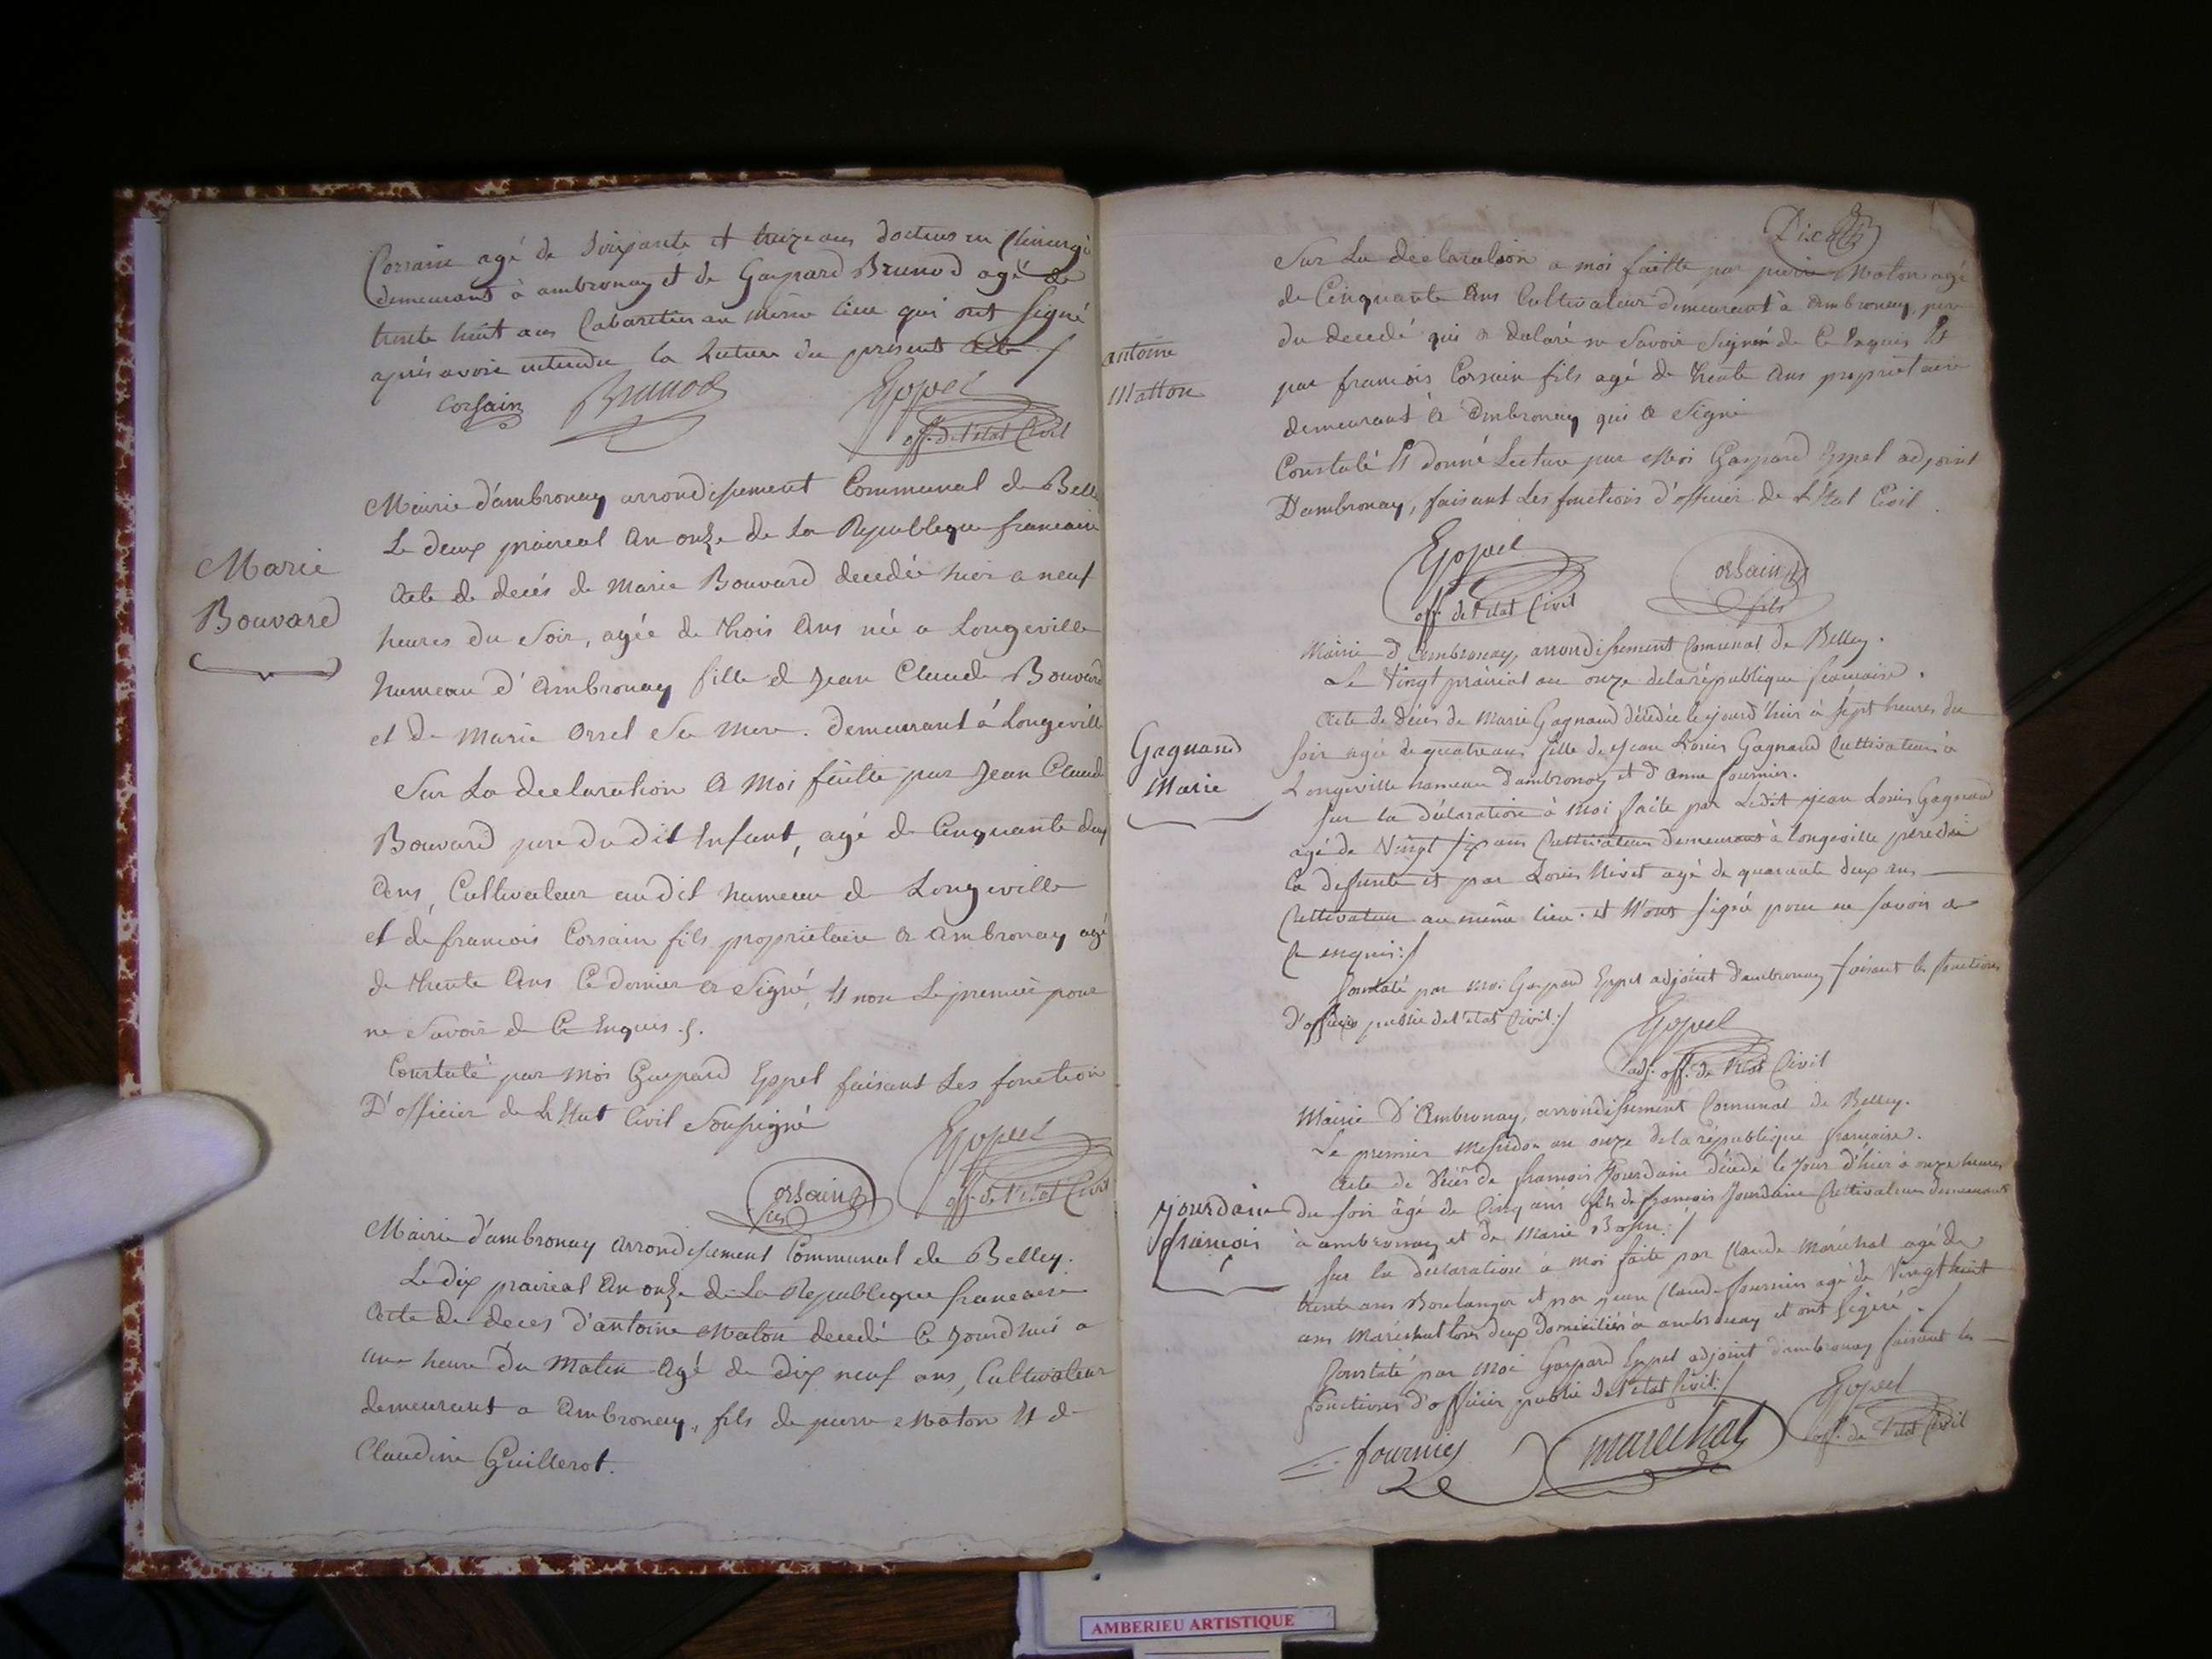 Corsain agé de soixante et treize ans docteur en Chirurgi
demeurant à ambronay et de Gaspard Brunod agé de
trente huit ans Cabaretier au même lieu qui ont signé
après avoir entendu la lecture du présent acte ./
Corsain Brunod Eppel
off. de l'état Civil
Marie
Bouvard
Mairie d'ambronay arrondissement Communal de Belle
Le deux prairéal An onze de La Republique francaise
Acte de decés de Marie Bouvard decedée hier a neuf
heures du Soir, agée de trois Ans née a Longeville
hameau d'Ambronay fille de Jean Claude Bouvard
et de Marie Orsel Sa Mere. demeurant á Longeville
Sur La declaration A Moi faitte par Jean Claude
Bouvard pere du dit Enfant, agé de Cinquante deux
Ans, Cultivateur au dit hameau de Longeville
et de francois Corsain fils proprietaire a Ambronay agé
de trente Ans Ce dernier a Signé, Et non Le premier pour
ne Savoir de Ce Enquis ./.
Constaté par Moi Gaspard Eppel faisant Les fonction
D'officier de L'Etat Civil Soussigné
Corsain fils Eppel
off. de l'état Civil
Mairie d'ambronay arrondissement Communal de Belley.
Le dix prairéal An onze de La Republique francaise
Acte de deces d'antoine Maton decedé Ce Jourdhui a
une heure du Matin Agé de dix neuf ans, Cultivateur
demeurant a Ambronay, fils de pierre Maton Et de
Claudine Guillerot.
Dix
antoine
Matton
Sur La déclaration a moi faitte par pierre Maton agé
de Cinquante Ans Cultivateur demeurant à Ambronay, pere
du decedé qui a declaré ne Savoir Signer de Ce Enquis Et
par francois Corsain fils agé de trente Ans proprietaire
demeurant à Ambronay qui a Signé
Constaté Et donné Lecture par Moi Gaspard Eppel adjoint
D'ambronay, faisant Les fonctions d'officier de L'Etat Civil.
Eppel Corsain
off. de l'état Civil fils
Mairie d'Ambronay, arrondissement Comunal de Belley.
Le Vingt prairial an onze de la république francaise.
Gagnand
Marie
Acte de Décès de Marie Gagnand décédée le jourd'hier à sept heures du
soir agée de quatre ans fille de Jean Louis Gagnand Cultivateur à
Longeville hameau d'ambronay et d'anne fournier.
sur la déclaration à moi faite par Ledit jean Louis Gagnand
agé de Vingt six ans Cultivateur demeurant à Longeville père de
la defunte et par Louis Nivet agé de quarante deux ans
Cultivateur au même lieu. et N'ont signé pour ne savoir de
ce enquis ./
Constaté par moi Gaspard Eppel adjoint d'ambronay faisant les fonctions
d'officier public de l'etat Civil ./
Eppel
adj. off. de l'état Civil
Mairie D'Ambronay, arrondissement Comunal de Belley.
Le premier Messidor an onze de la république francaise.
Jourdain
francois
Acte de Décès de francois Jourdain décédé le jour d'hier à onze heures
du soir âgé de Cinq ans fils de francois Jourdain Cultivateur demeurant
à ambronay et de Marie ./
sur la declaration à moi faite par Claude Maréchal agé de
trente ans Boulanger et par jean Claude fournier agé de Vingt huit
ans Maréchal tous deux Domiciliés à ambronay et ont signé ./
Constaté par Moi Gaspard Eppel adjoint d'ambronay faisant les
fonctions d'officier public de l'etat Civil ./
fournier Marechal Eppel
off. de l'état Civil
AMBERIEU ARTISTIQUE